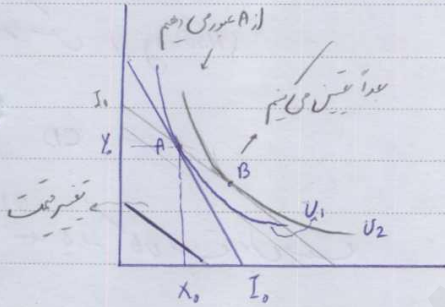 از A عبور می دهیم
بعداً تعیین می کنیم
I₁
Y₀
A
B
U₁
U₂
تغییر قیمت
X₀
I₀